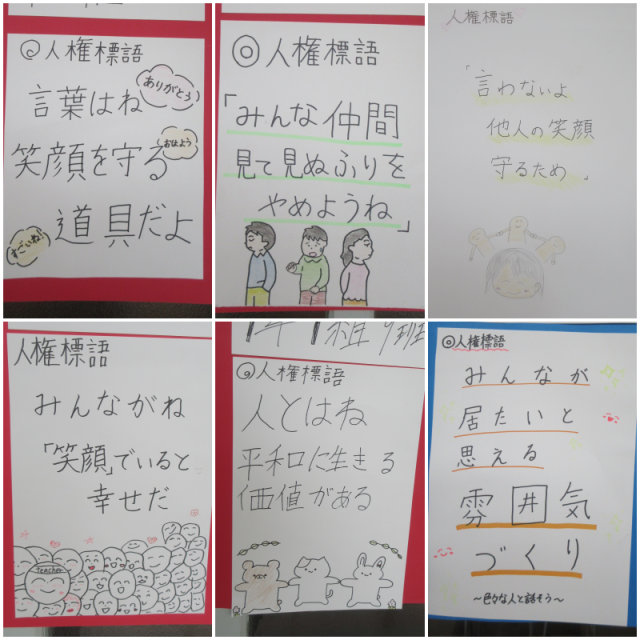 ◎人権標語
ありがとう
言葉はね
おはよう
笑顔を守る
すごいね!
道具だよ
◎人権標語
「みんな仲間
見て見ぬふりを
やめようね」
人権標語
「言わないよ
他人の笑顔
守るため」
人権標語
みんながね
「笑顔」でいると
幸せだ
Teacher
1年1組9班
◎人権標語
人とはね
平和に生きる
価値がある
◎人権標語
みんなが
居たいと
思える
雰囲気
づくり
〜色々な人と話そう〜